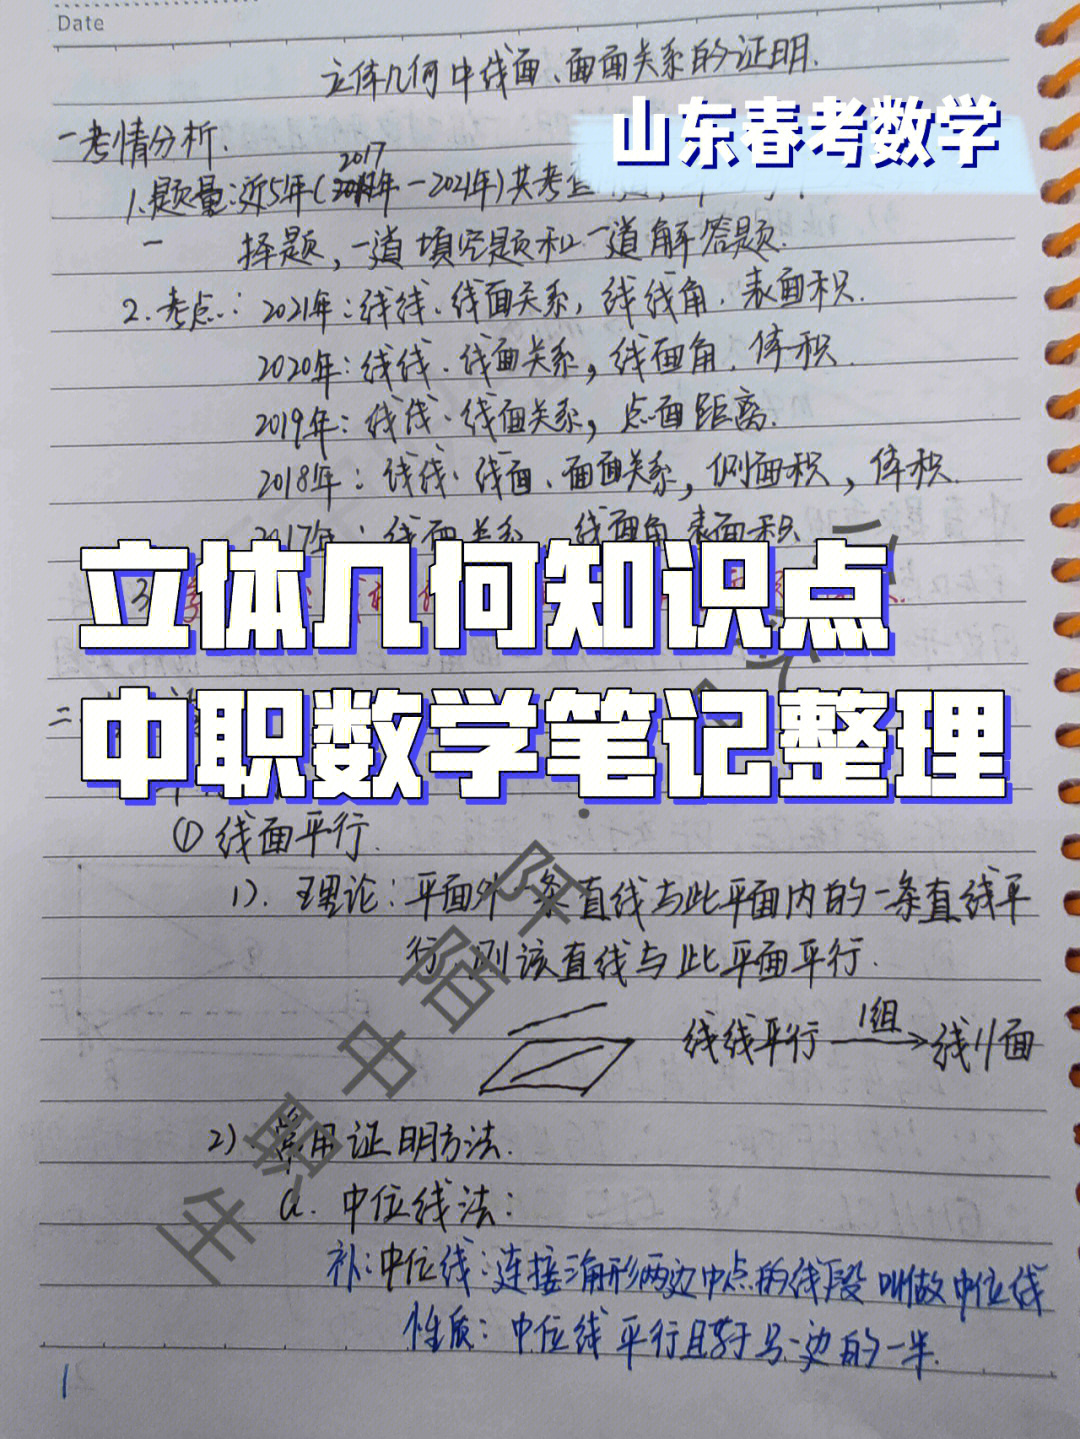 Date
立体几何中线面、面面关系的证明.
山东春考数学
一考情分析.
2017
1.题量:近5年(年-2021年)共考查
一 择题,一道填空题和一道解答题.
2.考点: 2021年:线线、线面关系,线线角、表面积.
2020年:线线、线面关系,线面角、体积.
2019年:线线、线面关系,点面距离.
2018年:线线、线面、面面关系,侧面积,体积.
2017年:线面关系 线面角、表面积
立体几何知识点
3
二
中职数学笔记整理
①线面平行.
1).理论:平面外一条直线与此平面内的一条直线平
行,则该直线与此平面平行.
线线平行 1组→ 线//面
2).常用证明方法.
a.中位线法:
补:中位线:连接三角形两边中点的线段叫做中位线
性质:中位线平行且等于另一边的一半.
1